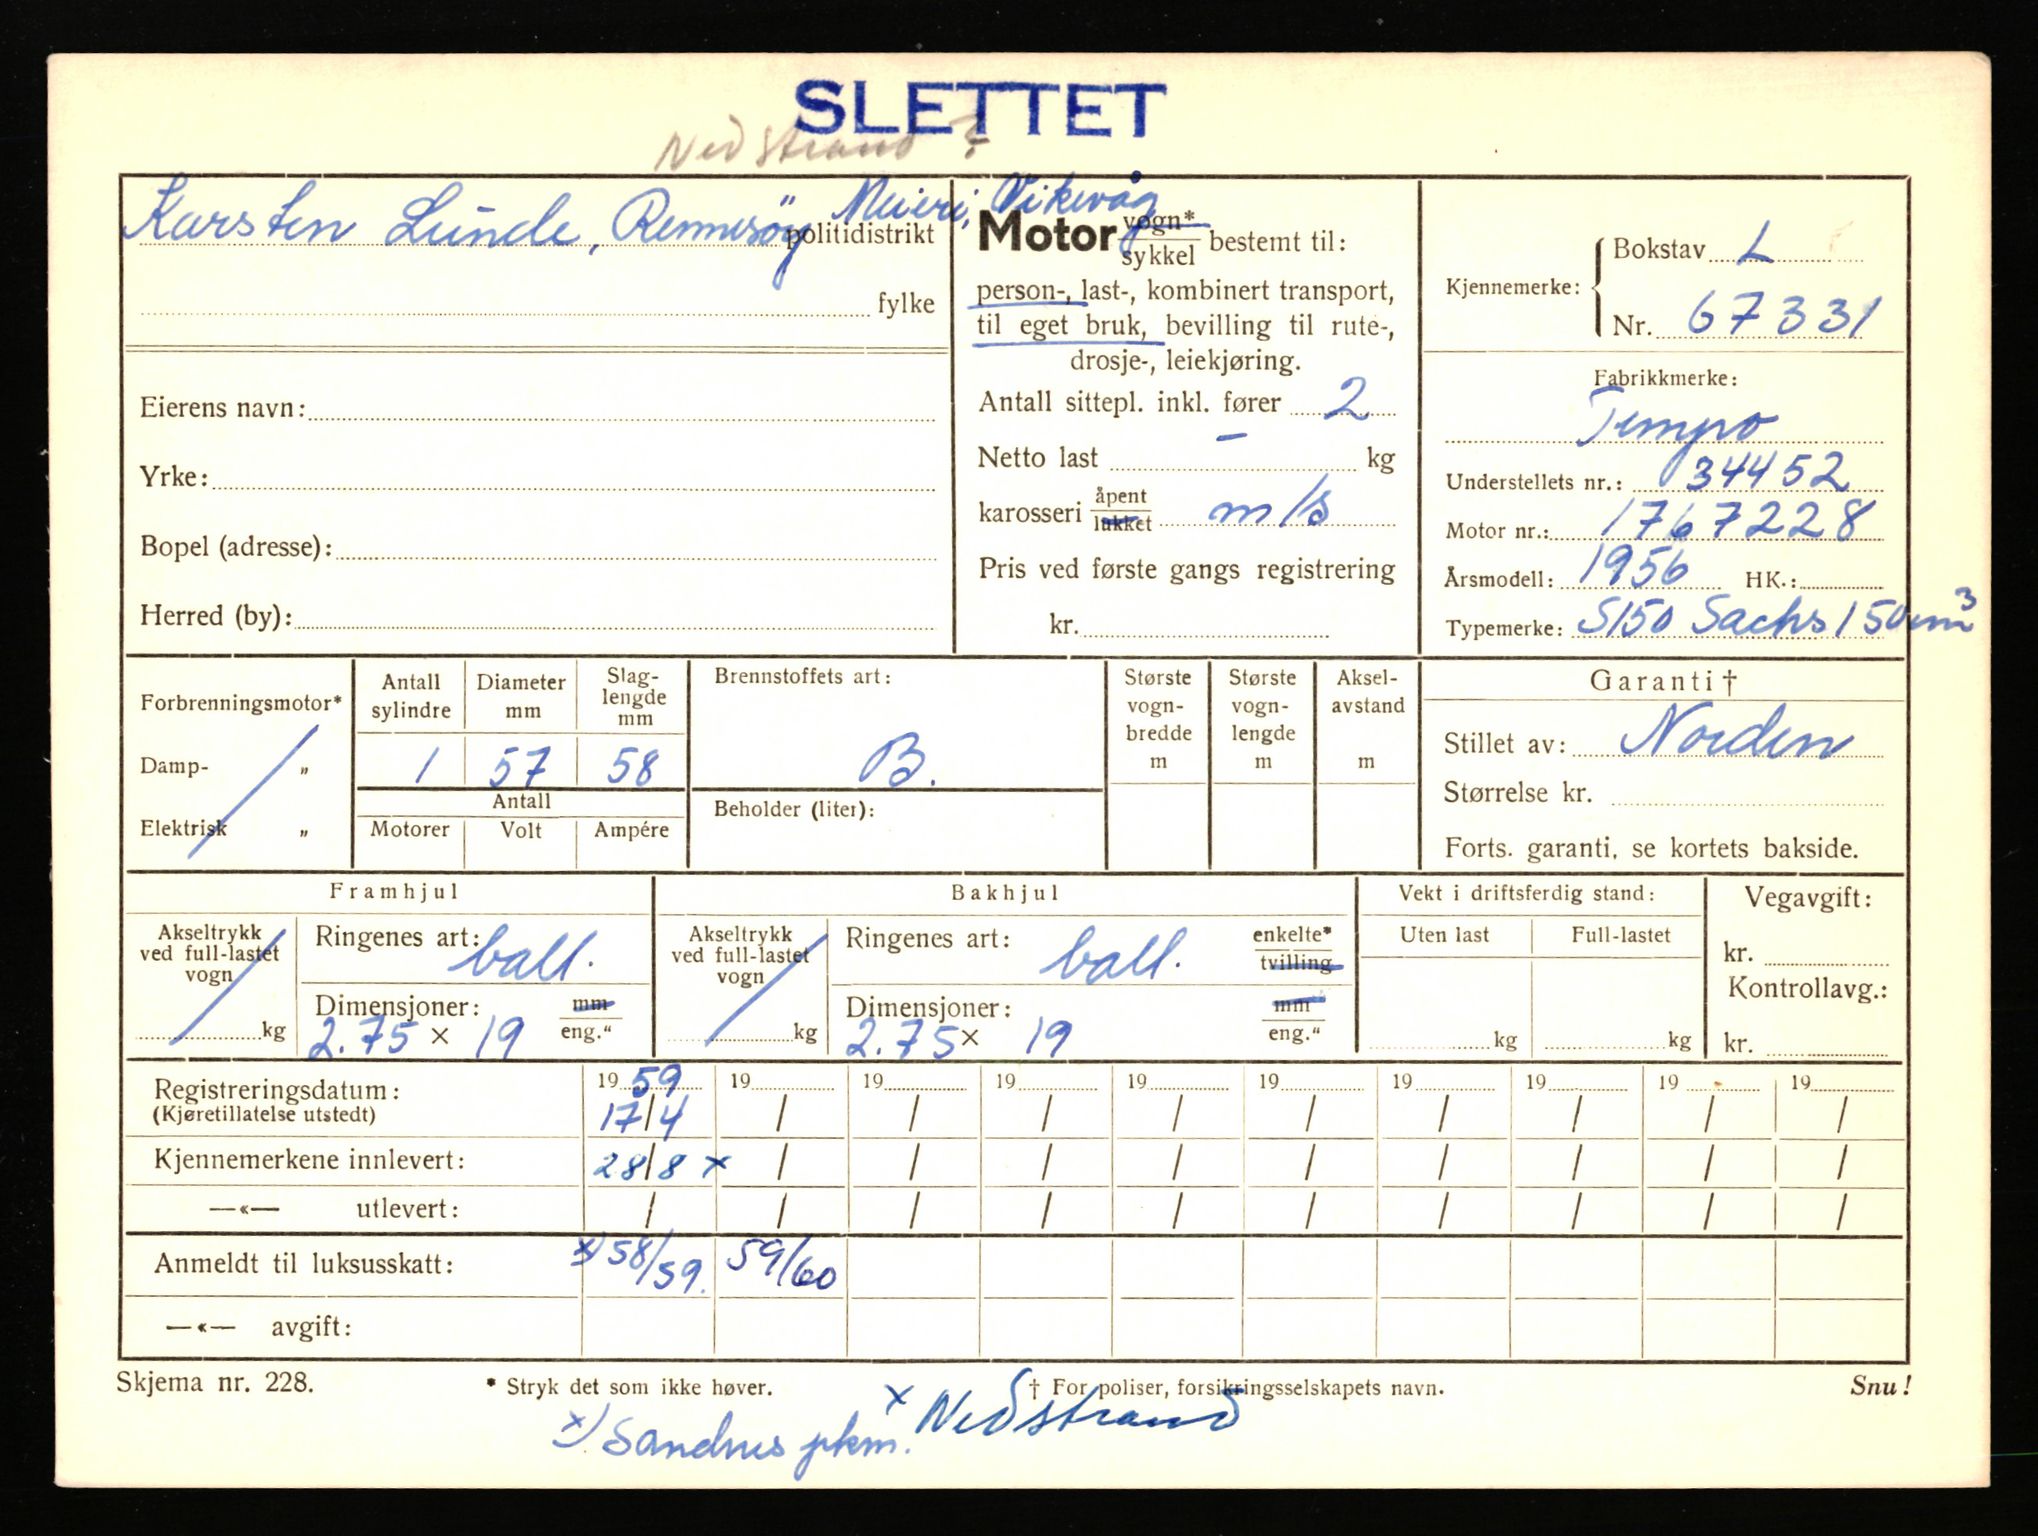 SLETTET
Nedstrand ?
Karsten Lunde, Rennesöy Meieri, Vikevåg
politidistrikt
fylke
Eierens navn:
Yrke:
Bopel (adresse):
Herred (by):
Motor vogn* sykkel bestemt til:
person-, last-, kombinert transport,
til eget bruk, bevilling til rute-,
drosje-, leiekjøring.
Antall sittepl. inkl. fører 2
Netto last – kg
karosseri åpent lukket m/s
Pris ved første gangs registrering
kr.
Kjennemerke: Bokstav L
Nr. 67331
Fabrikkmerke:
Tempo
Understellets nr.: 34452
Motor nr.: 1767228
Årsmodell: 1956 HK.:
Typemerke: S150 Sachs 150cm³
Forbrenningsmotor*
Damp- „
Elektrisk „
Antall sylindre
Diameter mm
Slag-lengde mm
1 57 58
Antall
Motorer Volt Ampére
Brennstoffets art:
B.
Beholder (liter):
Største vogn-bredde m
Største vogn-lengde m
Aksel-avstand m
Garanti †
Stillet av: Norden
Størrelse kr.
Forts. garanti, se kortets bakside.
Framhjul
Akseltrykk ved full-lastet vogn
kg
Ringenes art: ball.
Dimensjoner: mm
2.75 × 19 eng."
Bakhjul
Akseltrykk ved full-lastet vogn
kg
Ringenes art: ball. enkelte* tvilling
Dimensjoner: mm
2.75 × 19 eng."
Vekt i driftsferdig stand:
Uten last Full-lastet
kg kg
Vegavgift:
kr.
Kontrollavg.:
kr.
Registreringsdatum: 19 59 19 19 19 19 19 19 19 19 19
(Kjøretillatelse utstedt) 17/4 / / / / / / / / /
Kjennemerkene innlevert: 28/8 x / / / / / / / / /
—«— utlevert: / / / / / / / / / /
Anmeldt til luksusskatt: x) 58/59. 59/60
—«— avgift:
Skjema nr. 228. * Stryk det som ikke høver. † For poliser, forsikringsselskapets navn. Snu!
x) Sandnes pkm. x Nedstrand